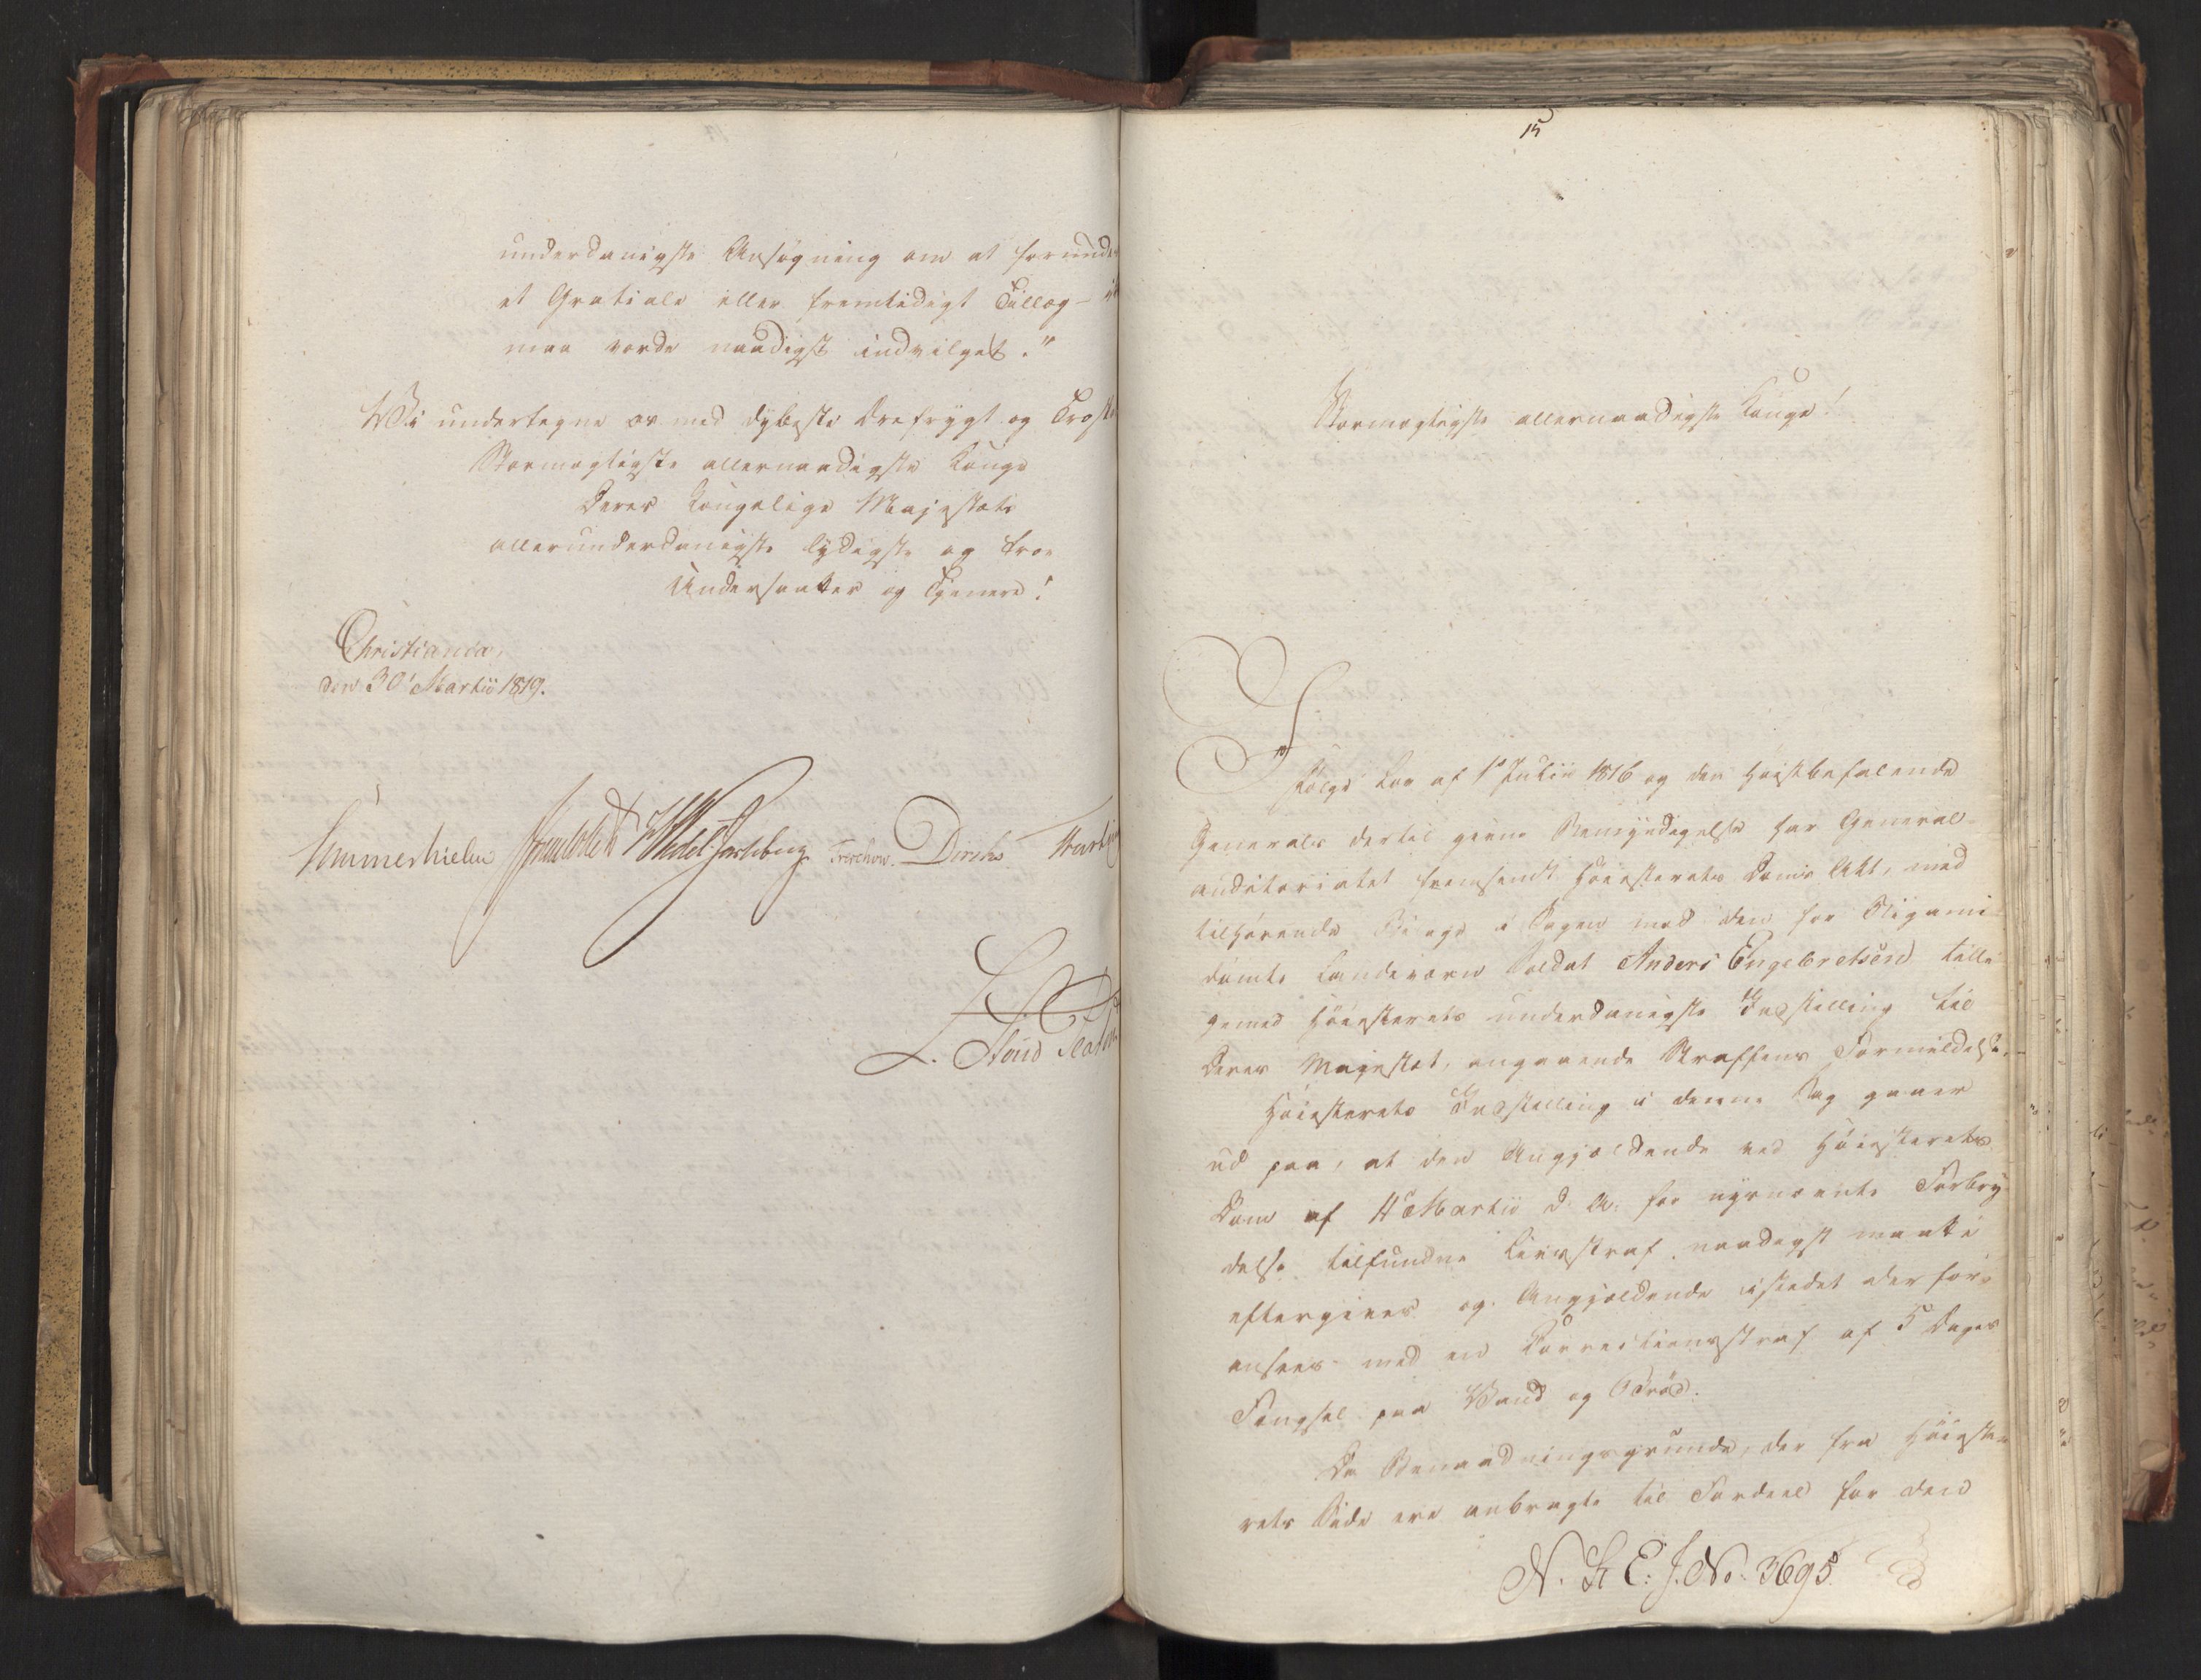 underdanigste Ansøgning om at forunde
et Gratiale eller fremtidigt Tillæg -
maa vorde naadigst indvilget."
Vi undertegne os med dybeste Ærefrygt og
Stormægtigste allernaadigste Konge
Deres Kongelige Majestæts
allerunderdanigste lydigste og troe
Undersaatter og Tjenere!
Christiania,
den 30' Martii 1819.
Sommerhielm Wedel Jarlsberg Treschow. Diriks
15
Stormægtigste allernaadigste Konge!
I
følge Lov af 1' Julii 1816 og den Høistbefalende
Generals dertil givne Bemyndigelse har General-
auditoriatet fremsendt Høiesterets Doms Akt, med
tilhørende Bilage i Sagen mod den for Bigami
dømte Landeværn Soldat Anders Engebretsen tilli-
gemed Høiesterets underdanigste Indstilling til
Deres Majestæt, angaaende Straffens Formildelse.
Høiesterets Indstilling i denne Sag gaaer
ud paa, at den Angjældende ved Høiesterets
Dom af Martii d. A. for nysnævnte Forbry-
delse tilfundne Livsstraf naadigst maatte
eftergives og Angjældende istedet derfor
ansees med en Correctionsstraf af 5 Dages
Fængsel paa Vand og Brød.
De Benaadningsgrunde, der fra Høieste-
rets Side ere anbragte til Fordeel for den
N. St E: J. No: 3695.